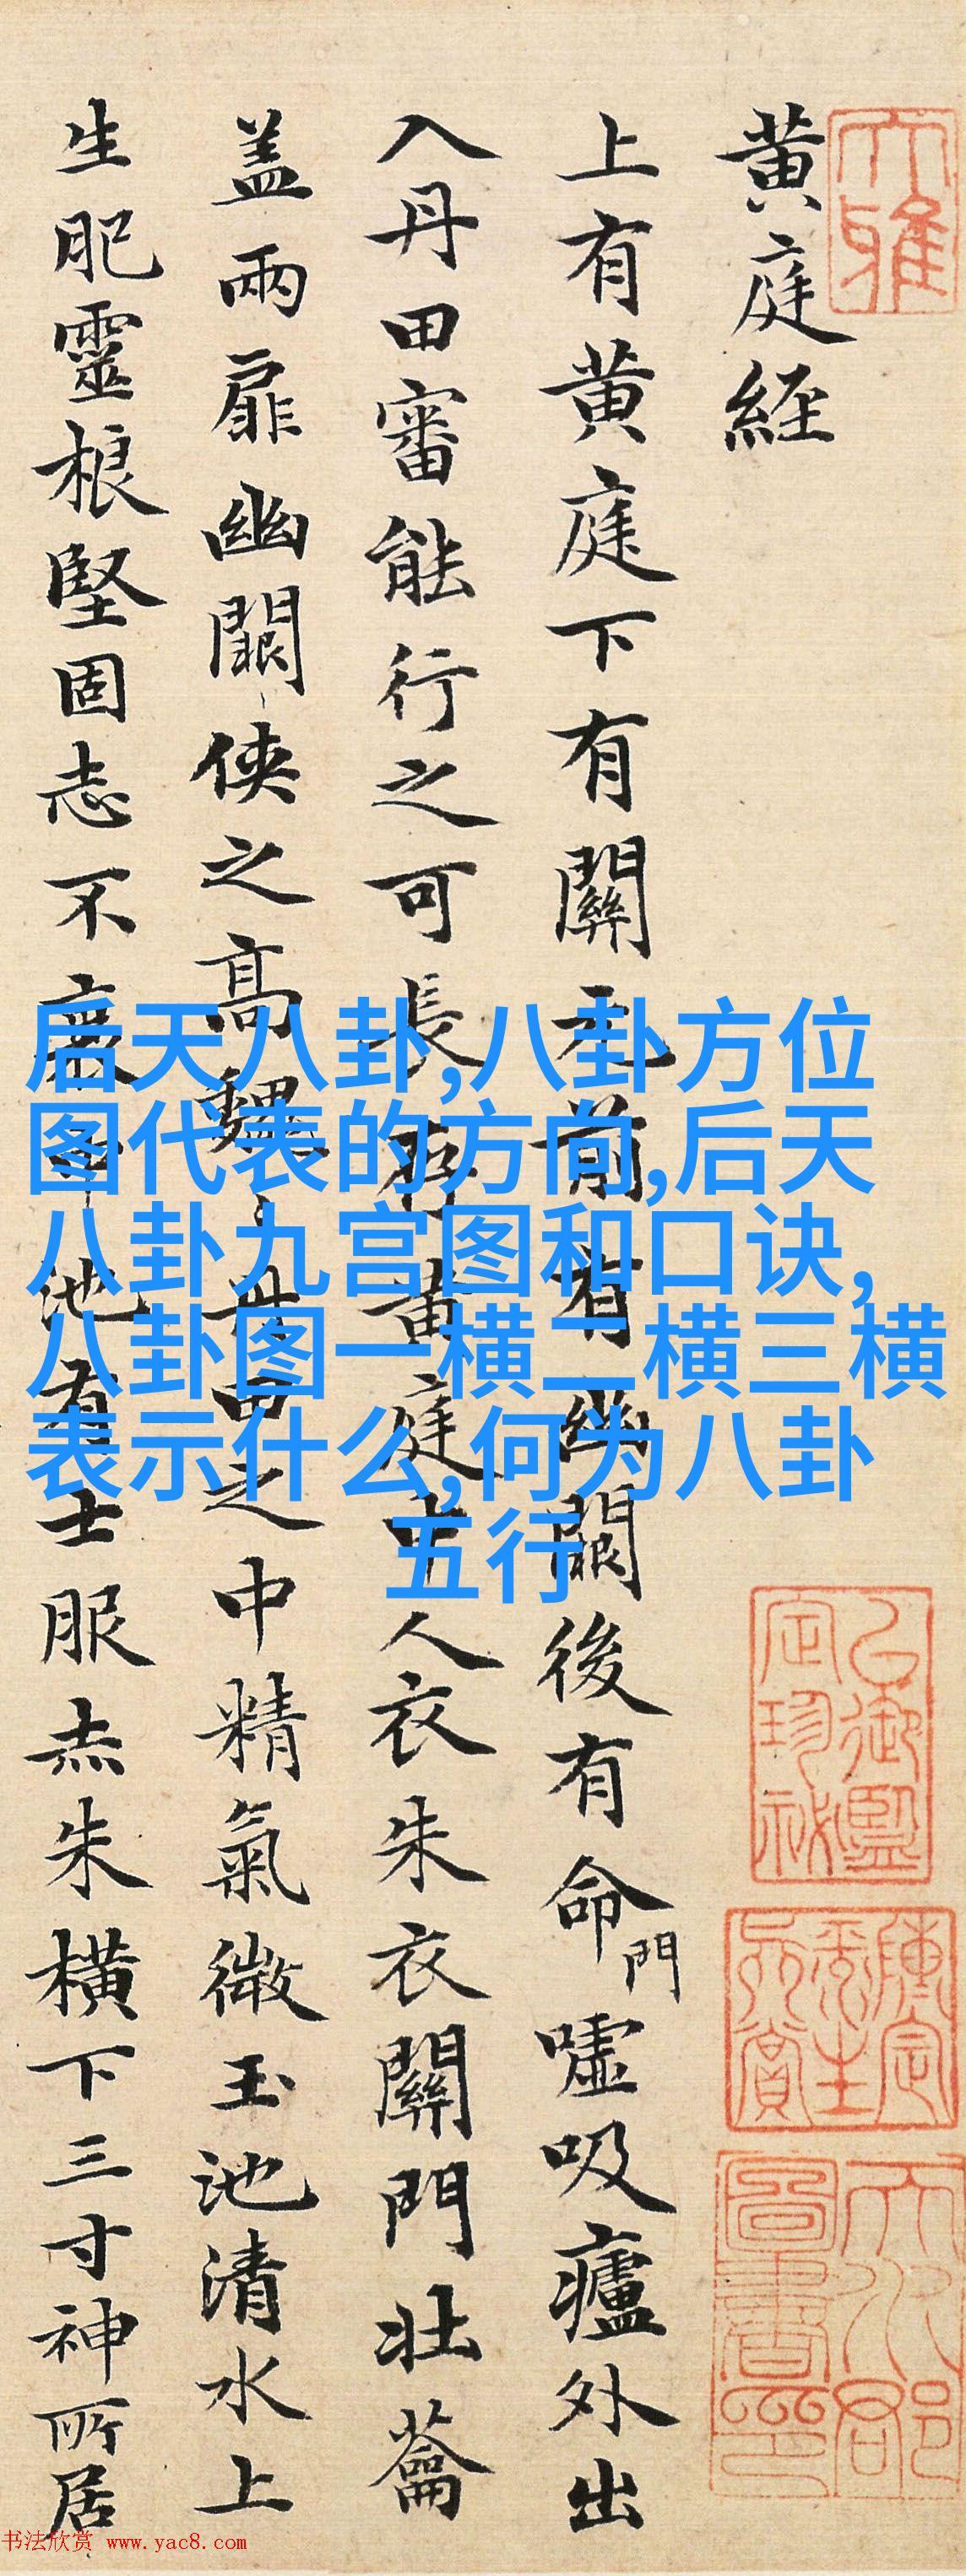 大雅
黄庭経
上有黄庭下有關元前有幽闕後有命門嘘吸廬外出
入丹田審能行之可長存黄庭中人衣朱衣關門壮蘥
盖兩扉幽闕侠之高魏丹田之中精氣微玉池清水上
生肥靈根堅固志不衰中池有士服赤朱横下三寸神所居
后天八卦,八卦方位
图代表的方向,后天
八卦九宫图和口诀,
八卦图一横二横三横
表示什么,何为八卦
五行
书法欣赏 www.yac8.com